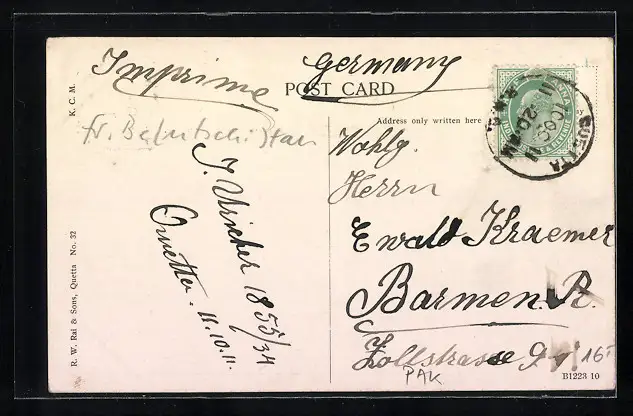 Imprimé
Germany
POST CARD
K. C. M.
Address only written here
fr. Belutschistan
QUETTA
Wohlg.
Herrn
Ewald Kraemer
Barmen. R.
Zollstrasse 9
16
PAK
1855/34
Quetta. 11.10.11.
R. W. Rai & Sons, Quetta No. 32
B1223 10